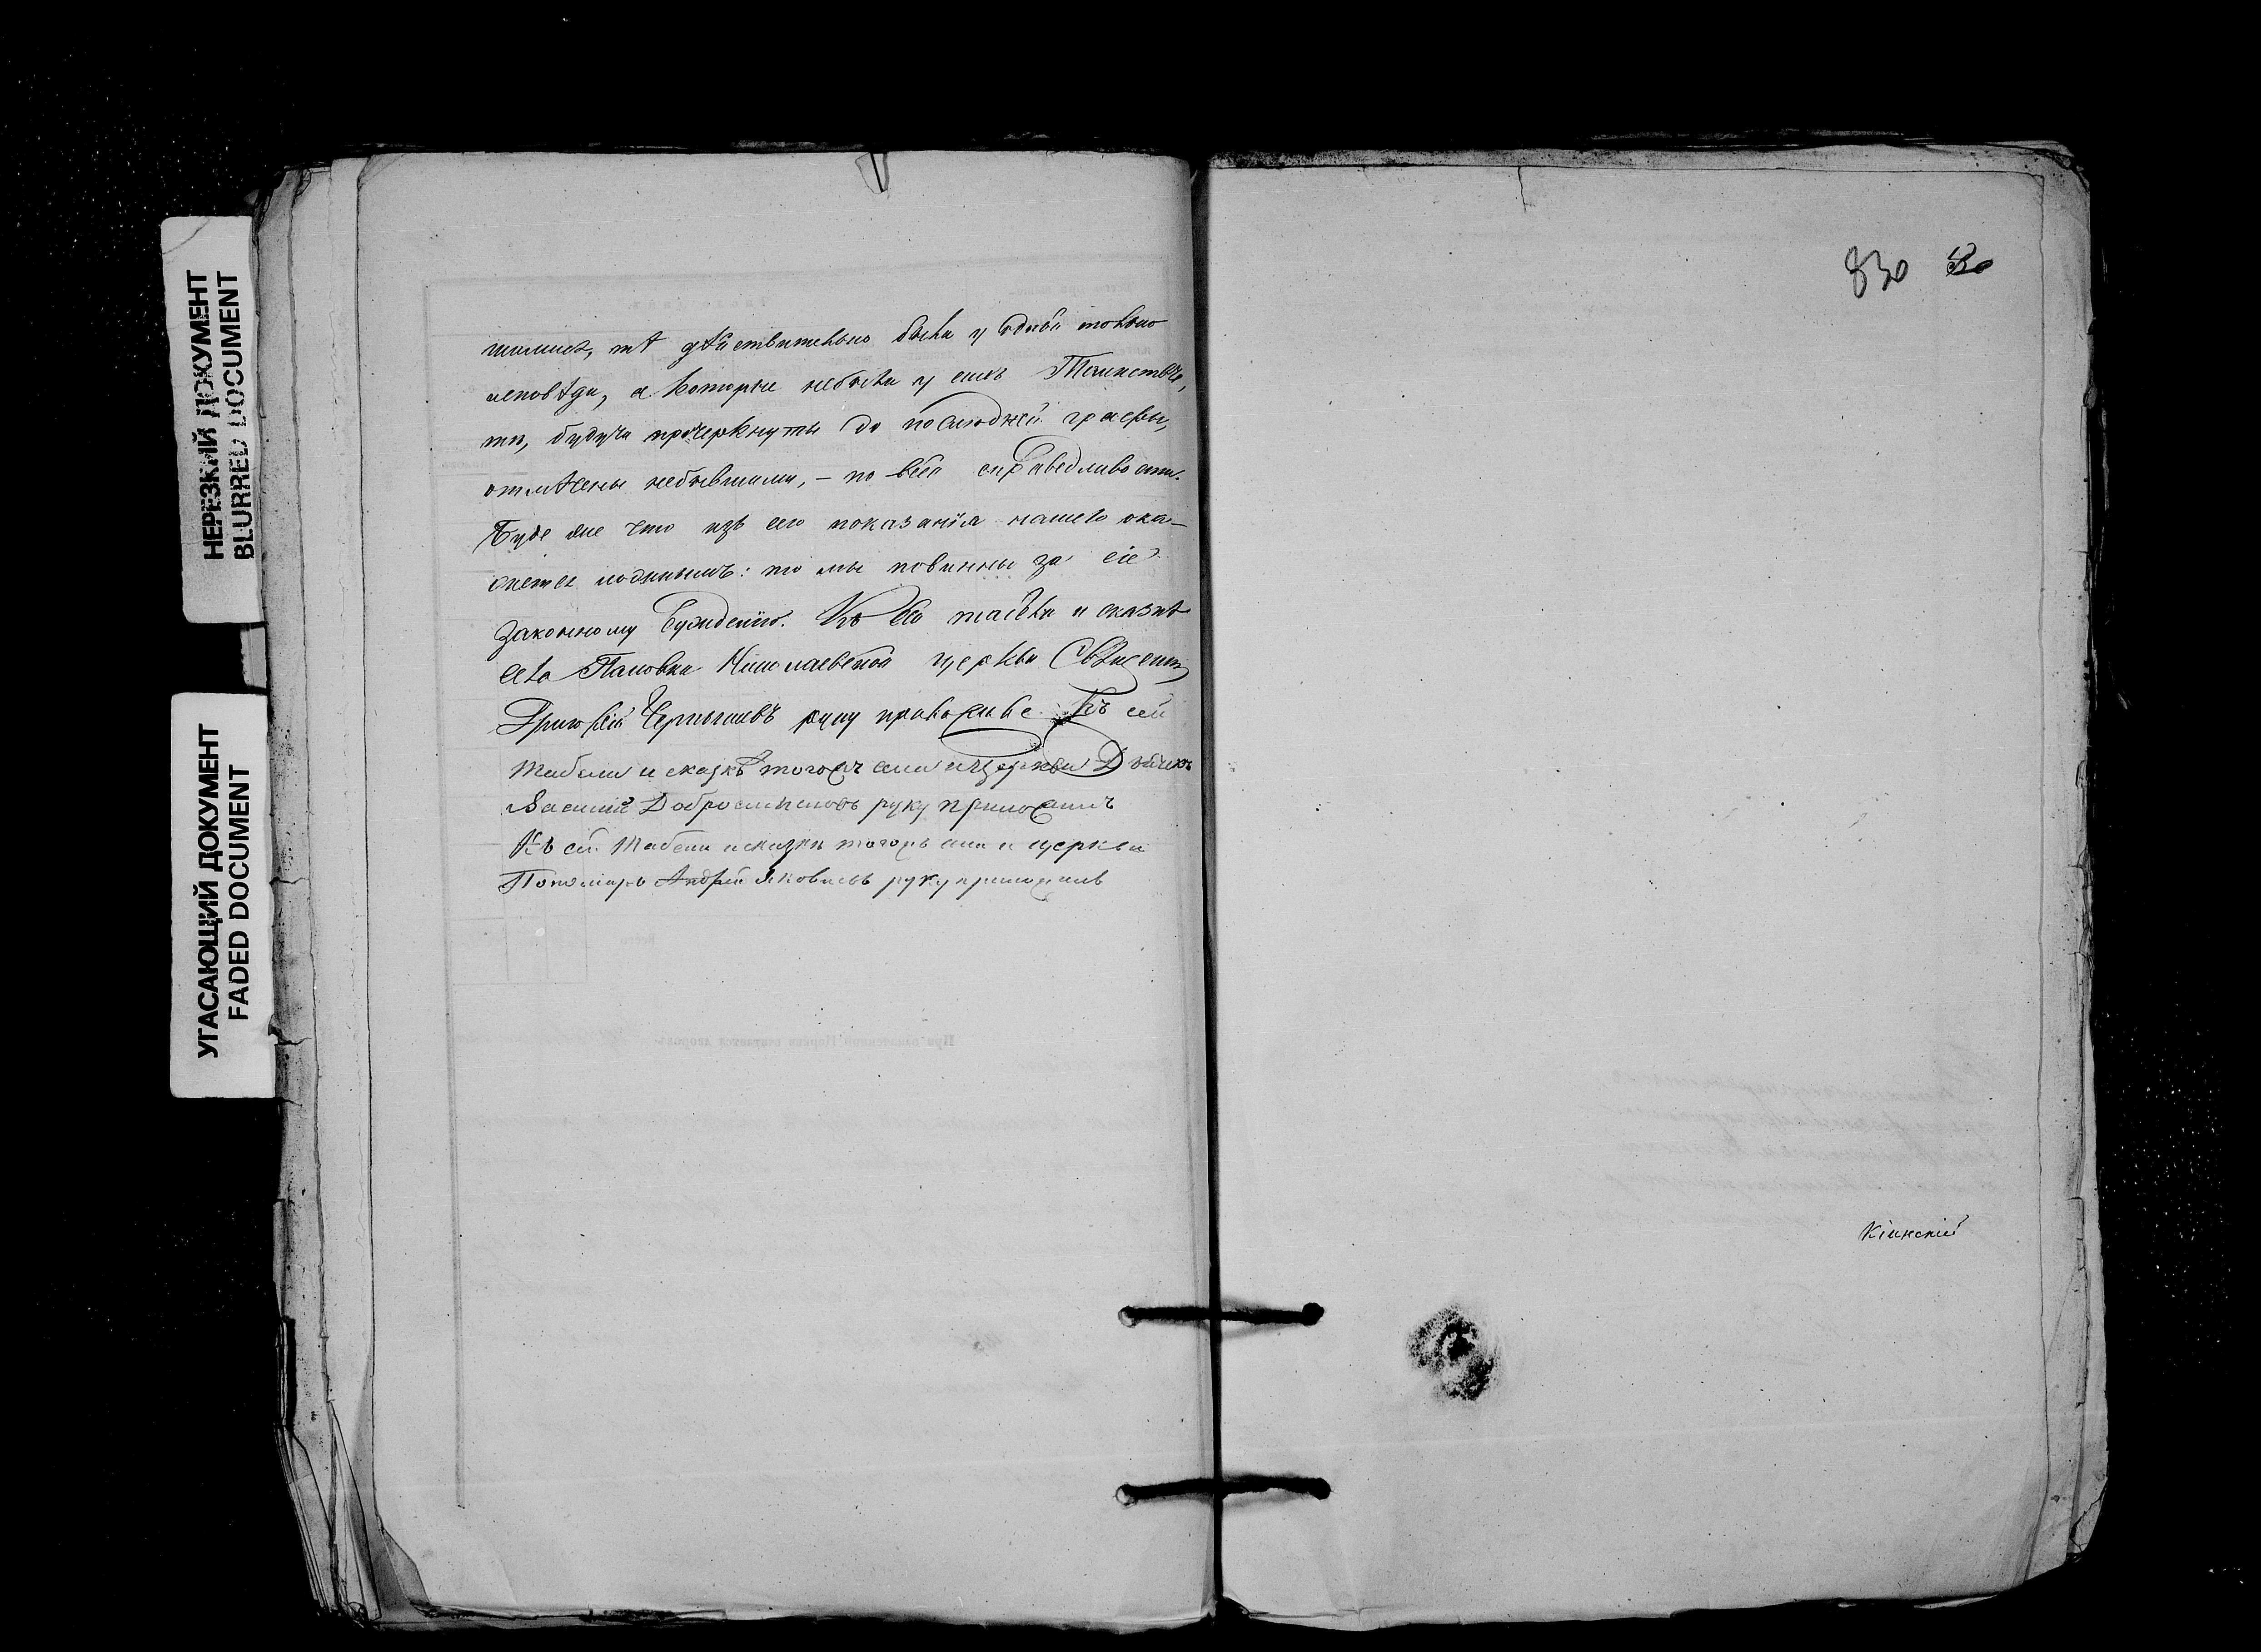 НЕРЕЗКИЙ ДОКУМЕНТ
BLURRED DOCUMENT
УГАСАЮЩИЙ ДОКУМЕНТ
FADED DOCUMENT
шились, тѣ дѣйствительно были у одной токмо
исповѣди, а которые небыли у сихъ Таинствъ,
тѣ, будучи прочеркнуты до последней графы,
отмѣчены небывшими, – по всей справедливости.
Буде же что изъ сего показанія нашего ока-
жется ложнымъ: то мы повинны за сіе
законному Суждению. Къ сей табели и сказкѣ
села Пановки Николаевской церкви Священ
Григорій Чернышевъ руку приложилъ. Къ сей
табели и сказкѣ тогожъ села и Церкви Дьячекъ
Василій Добросмысловъ руку приложилъ
Къ сей табели и сказки тогожъ села и церкви
Пономарь Андрей Яковлевъ руку приложилъ
При означенной Церкви считается дворовъ
830
Кіинскій